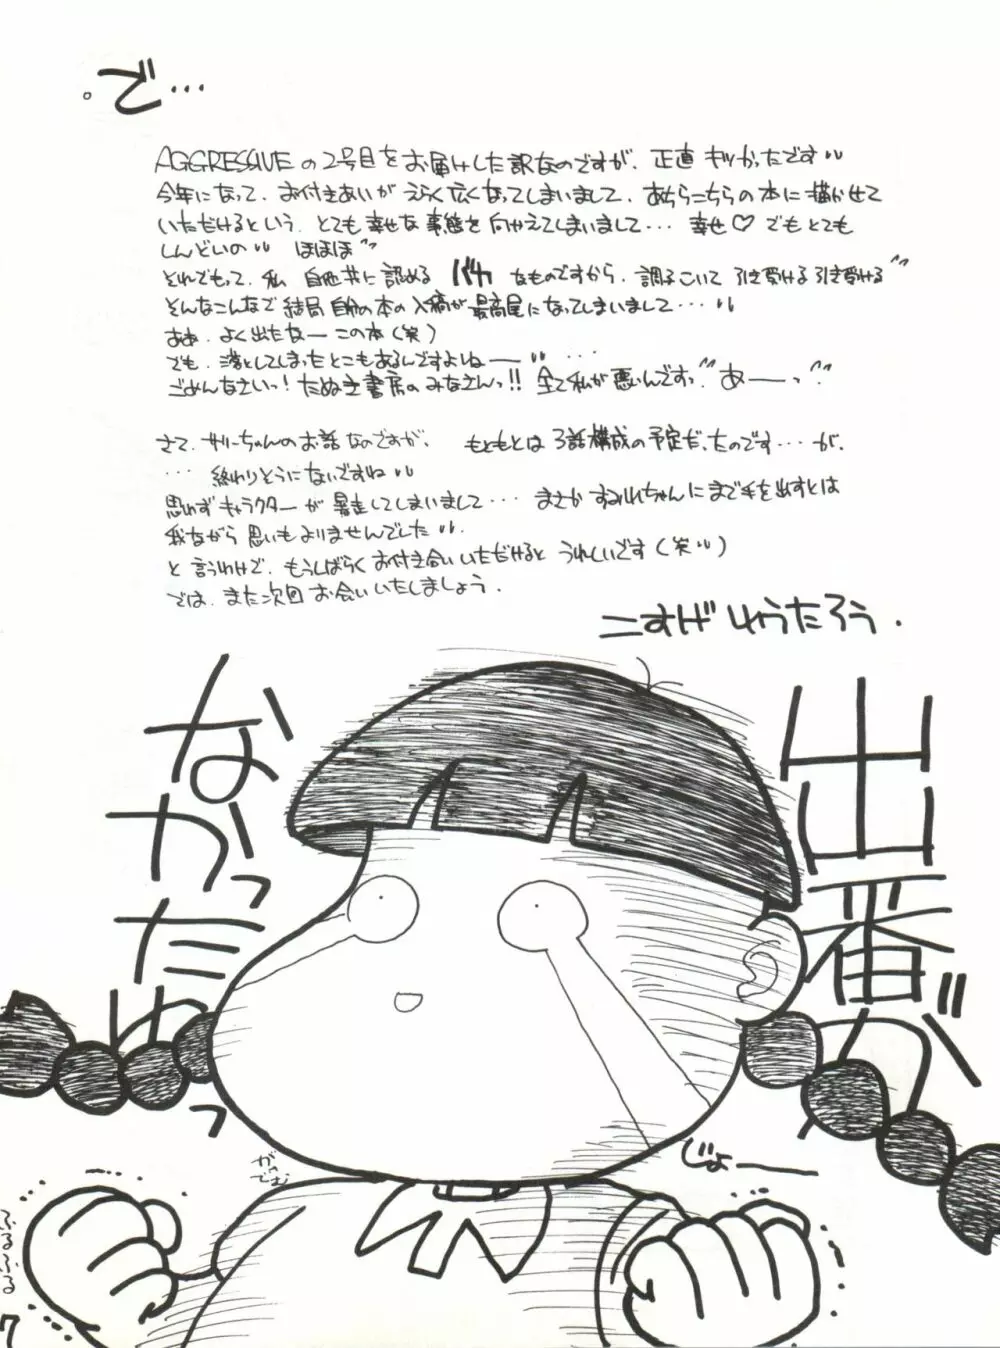 。で…
AGGRESSIVEの2号目をお届けした訳なのですが、正直キツかったです
今年になって、お付きあいがえらく広くなってしまいまして、あちらこちらの本に描かせて
いただけるという、とても幸せな事態を向かえてしまいまして… 幸せ♡でもとても
しんどいの ほほほ
それでもって、私 自他共に認める バカ なものですから、調子こいて 引き受ける引き受ける
そんなこんなで結局自分の本の入稿が最高尾になってしまいまして…
ああ、よく出たなー この本(笑)
でも、落としてしまったとこもあるんですよねー …
ごめんなさいっ!たぬき書房のみなさんっ!! 全て私が悪いんですっ "あーーっ"
さて、サリーちゃんのお話なのですが、 もともとは3話構成の予定だったのです…が、
… 終わりそうにないですね
思わずキャラクターが暴走してしまいまして… まさかすみれちゃんにまで手を出すとは
我ながら思いもよりませんでした
と言うわけで、もうしばらくお付き合いいただけるとうれしいです(笑)
では、また次回お会いいたしましょう.
こすげりゅうたろう.
出番が
なかったわっ
じょーー
がっでむ
ふるふる
7